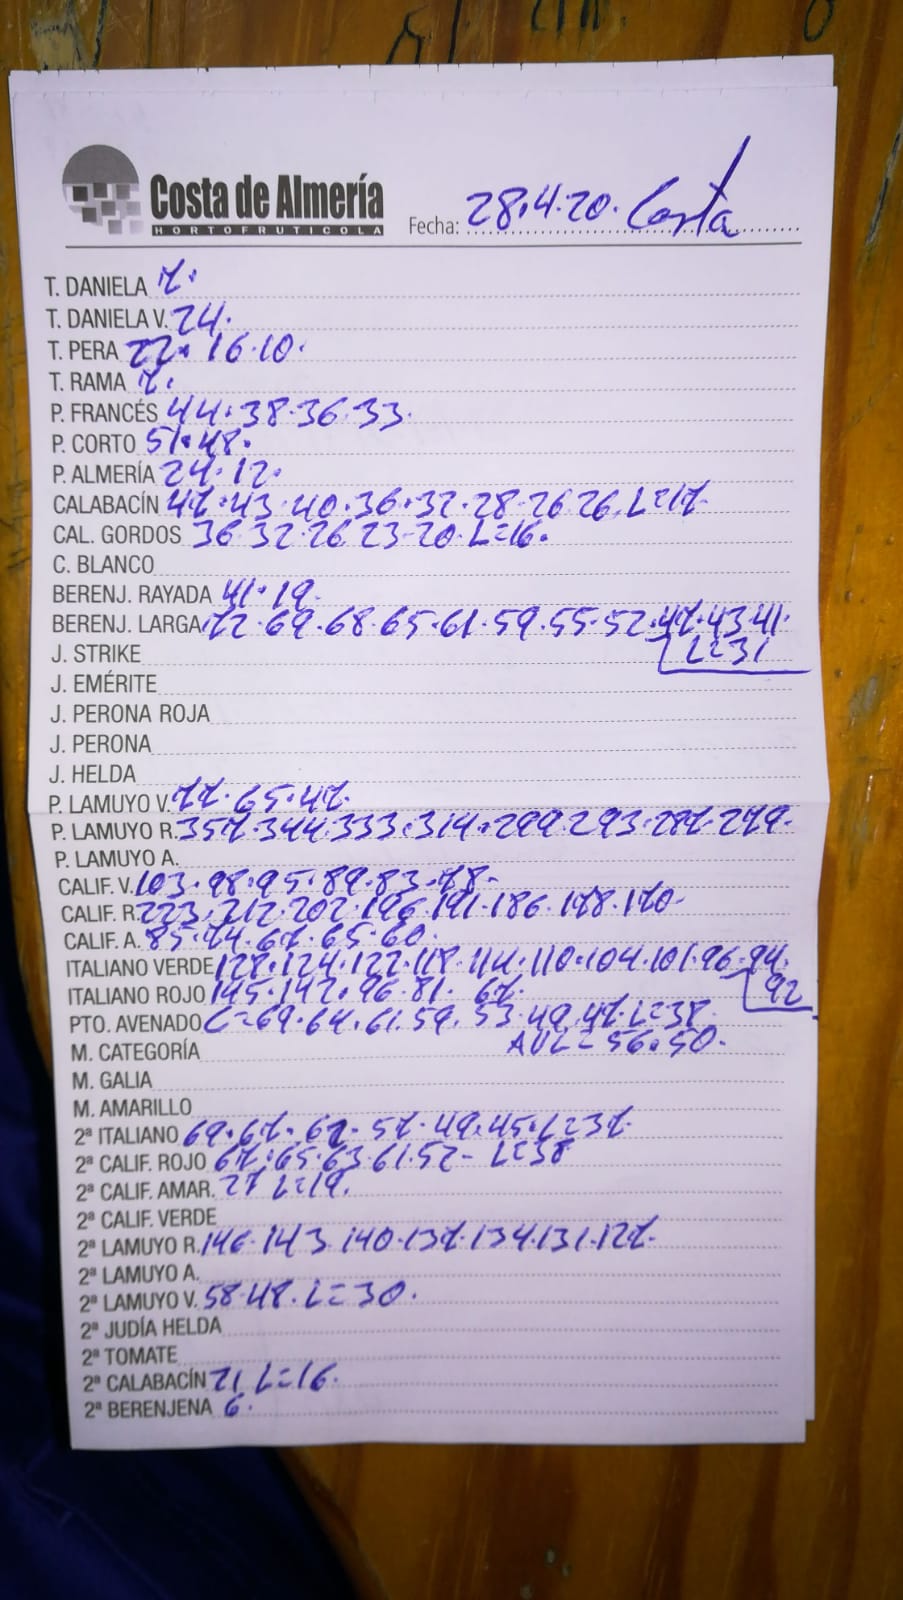 Costa de Almería
HORTOFRUTICOLA
Fecha: 28.4.20. Costa
T. DANIELA 7.
T. DANIELA V. 24.
T. PERA 22. 16.10.
T. RAMA 7.
P. FRANCÉS 44.38.36.33.
P. CORTO 51.48.
P. ALMERÍA 24.12.
CALABACÍN 47.43.40.36.32.28.26.26. L=17.
CAL. GORDOS 36.32.26.23-20. L=16.
C. BLANCO
BERENJ. RAYADA 41.19.
BERENJ. LARGA 72.69.68.65.61.59.55.52.47.43.41.
L=31
J. STRIKE
J. EMÉRITE
J. PERONA ROJA
J. PERONA
J. HELDA
P. LAMUYO V. 77.65.47.
P. LAMUYO R. 357.344.333.314.299.293.287.279.
P. LAMUYO A.
CALIF. V. 103.98.95.89.83.78-
CALIF. R. 223.212.202.196.191.186.178.170-
CALIF. A. 85.74.67.65.60.
ITALIANO VERDE 127.124.122.118.114.110.104.101.96-94.
92
ITALIANO ROJO 145.142.96.81. 67.
PTO. AVENADO C=69.64.61.59.53.49.47. L=38.
M. CATEGORÍA AVL=56.50.
M. GALIA
M. AMARILLO
2ª ITALIANO 69.67. 62. 57.49.45. L=37.
2ª CALIF. ROJO 67.65.63.61.52- L=38
2ª CALIF. AMAR. 27 L=19.
2ª CALIF. VERDE
2ª LAMUYO R. 146.143.140.137.134.131.127.
2ª LAMUYO A.
2ª LAMUYO V. 58.48. L=30.
2ª JUDÍA HELDA
2ª TOMATE
2ª CALABACÍN 21 L=16.
2ª BERENJENA 6.